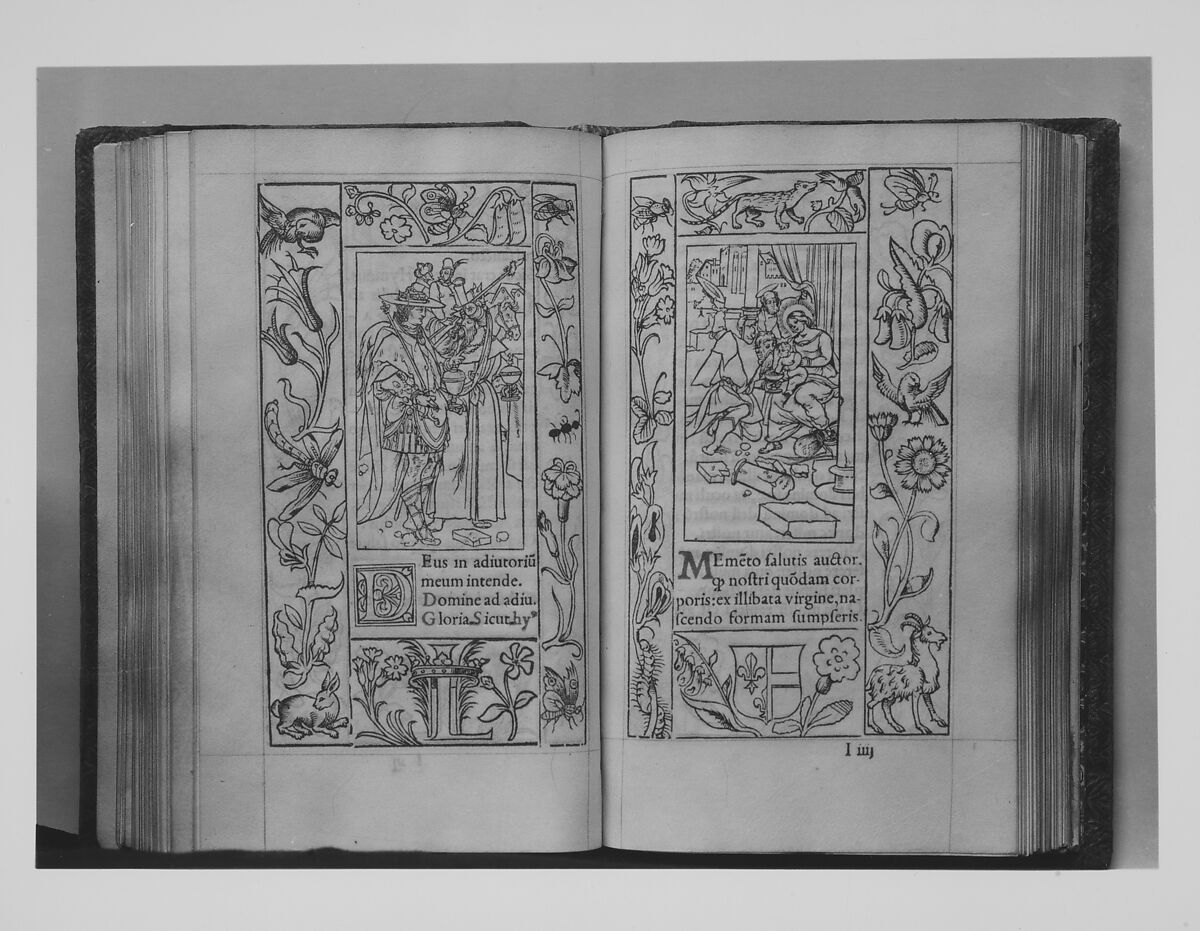 DEus in adiutoriū
meum intende.
Domine ad adiu.
Gloria. Sicut. hyꝰ
MEmēto salutis auctor.
ꝙ nostri quōdam cor-
poris: ex illibata virgine, na-
scendo formam sumpseris.
I iiij